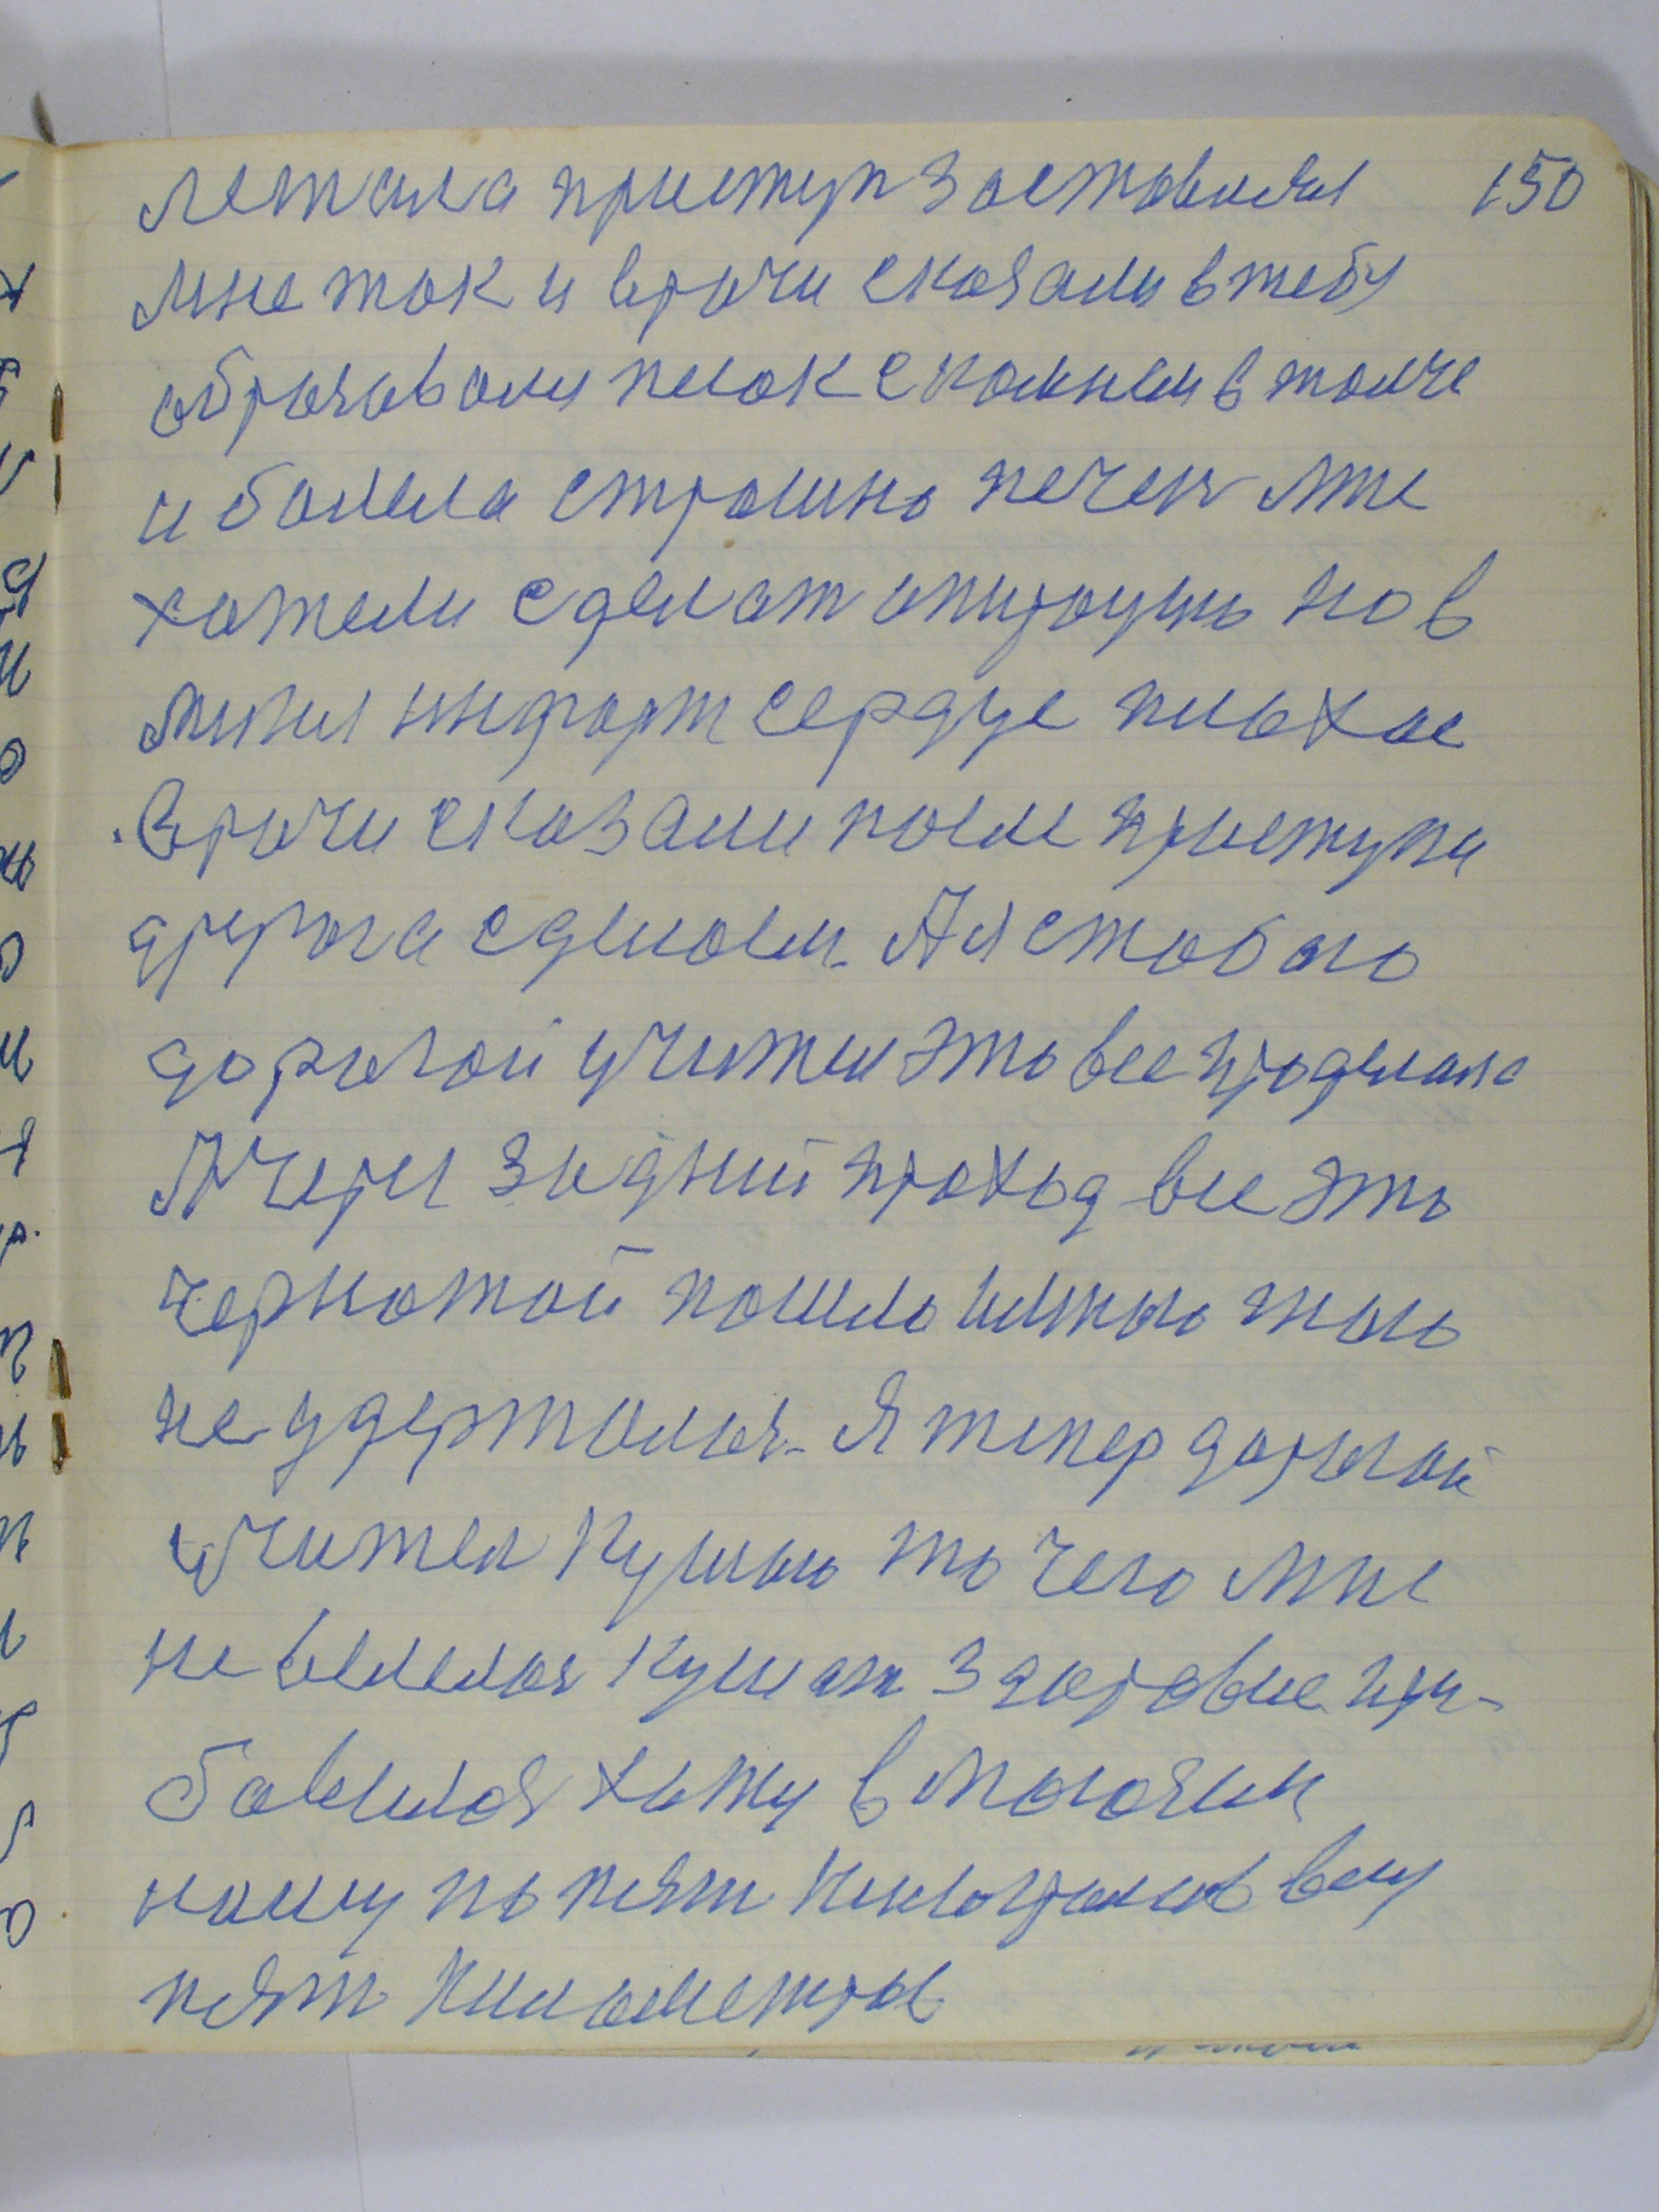 летала приступ заставлял 150
мне так и врачи сказали в тебя
абразавали песак с камнем в тожче
и болела страшно печень мне
хатели сделат аперацыю но в
миня инфаркт сердце плохое
врачи сказали после приступа
друрога сделаем. А я с тобою
дорогой учител это все проделала
А через задний проход все это
чернотой пошло
не удержалася. Я тепер дорогой
учител кушаю то чего мне
не велелося кушат здоровие при-
бавилося хажу в магазин
нашу по пят килограмов весу
пят километров